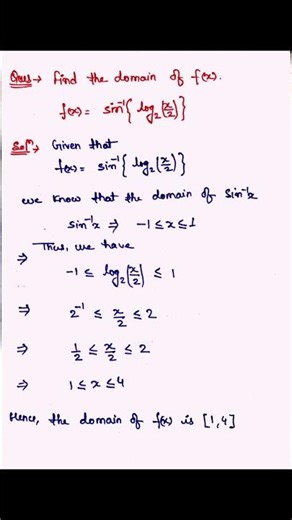 Ques → Find the domain of f(x).
f(x) = sin⁻¹{ log₂(x/2) }
Solⁿ → Given that
f(x) = sin⁻¹{ log₂(x/2) }
we know that the domain of sin⁻¹x
sin⁻¹x ⇒ -1 ≤ x ≤ 1
⇒ Thus, we have
-1 ≤ log₂(x/2) ≤ 1
⇒ 2⁻¹ ≤ x/2 ≤ 2
⇒ 1/2 ≤ x/2 ≤ 2
⇒ 1 ≤ x ≤ 4
Hence, the domain of f(x) is [1,4]